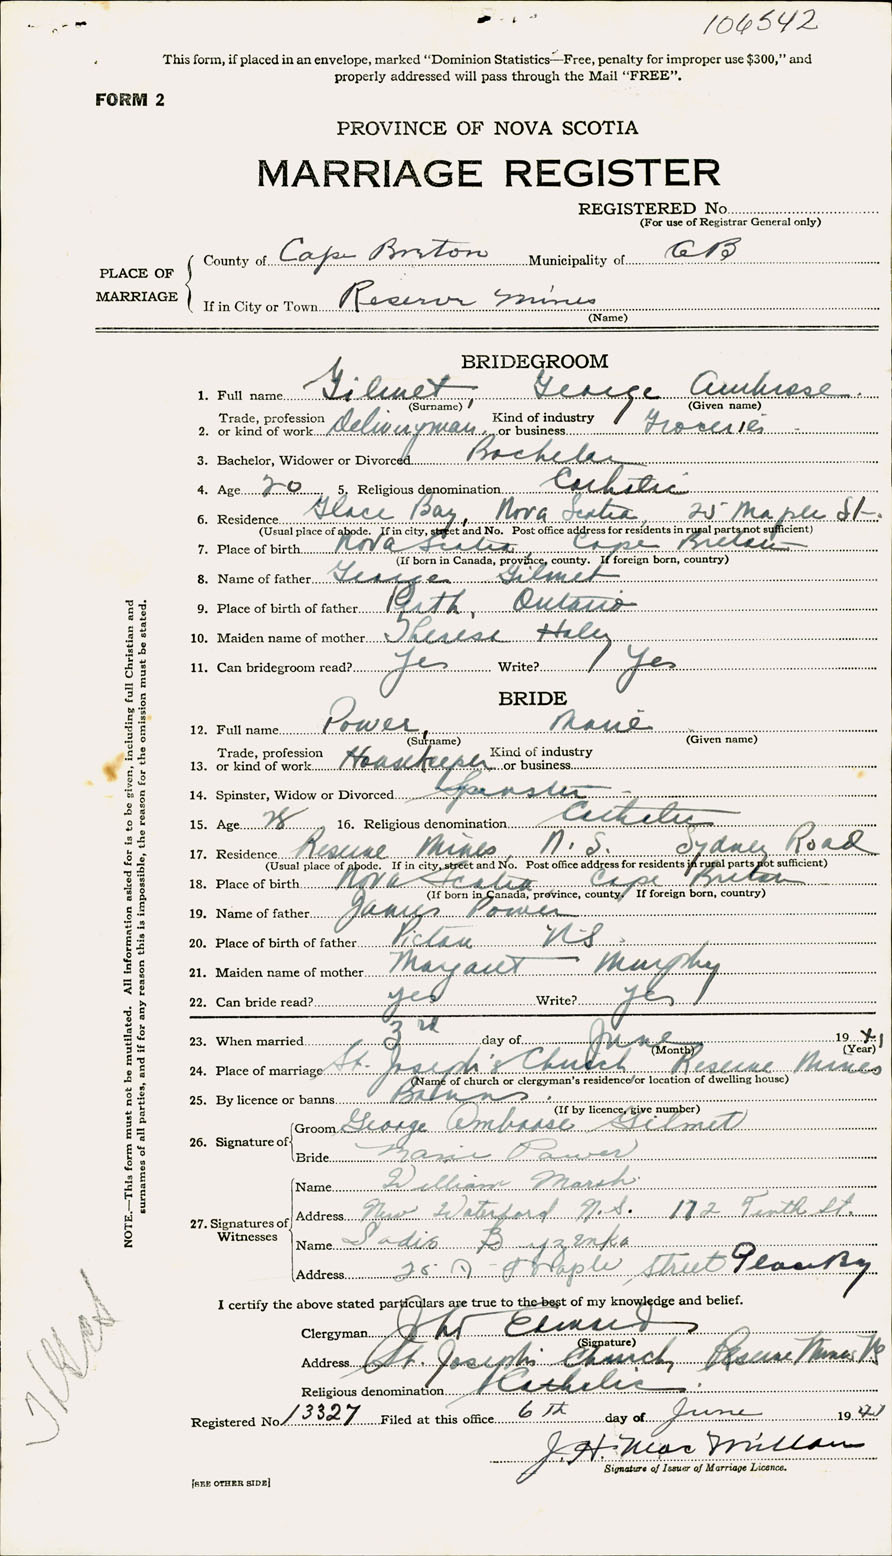 106542
This form, if placed in an envelope, marked "Dominion Statistics—Free, penalty for improper use $300," and
properly addressed will pass through the Mail "FREE".
FORM 2
PROVINCE OF NOVA SCOTIA
MARRIAGE REGISTER
REGISTERED No.
(For use of Registrar General only)
PLACE OF MARRIAGE
County of Cape Breton Municipality of CB
If in City or Town Reserve Mines
(Name)
BRIDEGROOM
1. Full name Gilmet, George Ambrose
(Surname) (Given name)
2. Trade, profession or kind of work Deliveryman Kind of industry or business Groceries
3. Bachelor, Widower or Divorced Bachelor
4. Age 20 5. Religious denomination Catholic
6. Residence Glace Bay, Nova Scotia, 25 Maple St.
(Usual place of abode. If in city, street and No. Post office address for residents in rural parts not sufficient)
7. Place of birth Nova Scotia, Cape Breton
(If born in Canada, province, county. If foreign born, country)
8. Name of father George Gilmet
9. Place of birth of father Perth, Ontario
10. Maiden name of mother Therese Haley
11. Can bridegroom read? Yes Write? Yes
BRIDE
12. Full name Power, Marie
(Surname) (Given name)
13. Trade, profession or kind of work Housekeeper Kind of industry or business
14. Spinster, Widow or Divorced Spinster
15. Age 16. Religious denomination Catholic
17. Residence Reserve Mines, N.S. Sydney Road
(Usual place of abode. If in city, street and No. Post office address for residents in rural parts not sufficient)
18. Place of birth Nova Scotia Cape Breton
(If born in Canada, province, county. If foreign born, country)
19. Name of father James Power
20. Place of birth of father Pictou N.S.
21. Maiden name of mother Margaret Murphy
22. Can bride read? yes Write? yes
23. When married 3rd day of June 1941
(Month) (Year)
24. Place of marriage St. Joseph's Church Reserve Mines
(Name of church or clergyman's residence/or location of dwelling house)
25. By licence or banns Banns.
(If by licence, give number)
26. Signature of
Groom George Ambrose Gilmet
Bride Marie Power
27. Signatures of Witnesses
Name William Marsh
Address New Waterford N.S. 172 Tenth St.
Name Sadie
Address 25 Maple Street Glace Bay
I certify the above stated particulars are true to the best of my knowledge and belief.
Clergyman
(Signature)
Address St. Joseph's Church, Reserve Mines NS
Religious denomination Catholic.
Registered No. 13327 Filed at this office 6th day of June 1941
J. H. MacMillan
Signature of Issuer of Marriage Licence.
[SEE OTHER SIDE]
NOTE.—This form must not be mutilated. All information asked for is to be given, including full Christian and
surnames of all parties, and if for any reason this is impossible, the reason for the omission must be stated.